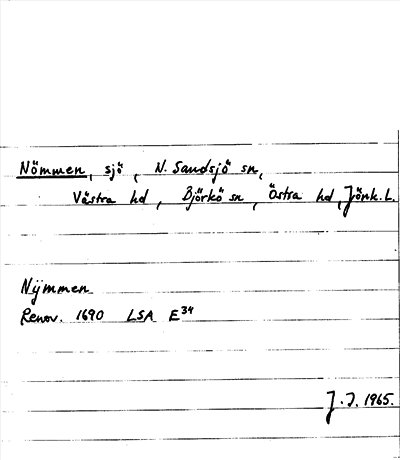 Nömmen, sjö, N. Sandsjö sn,
Västra hd, Björkö sn, Östra hd, Jönk. L.
Nÿmmen
Renov. 1690 LSA E34
J. J. 1965.